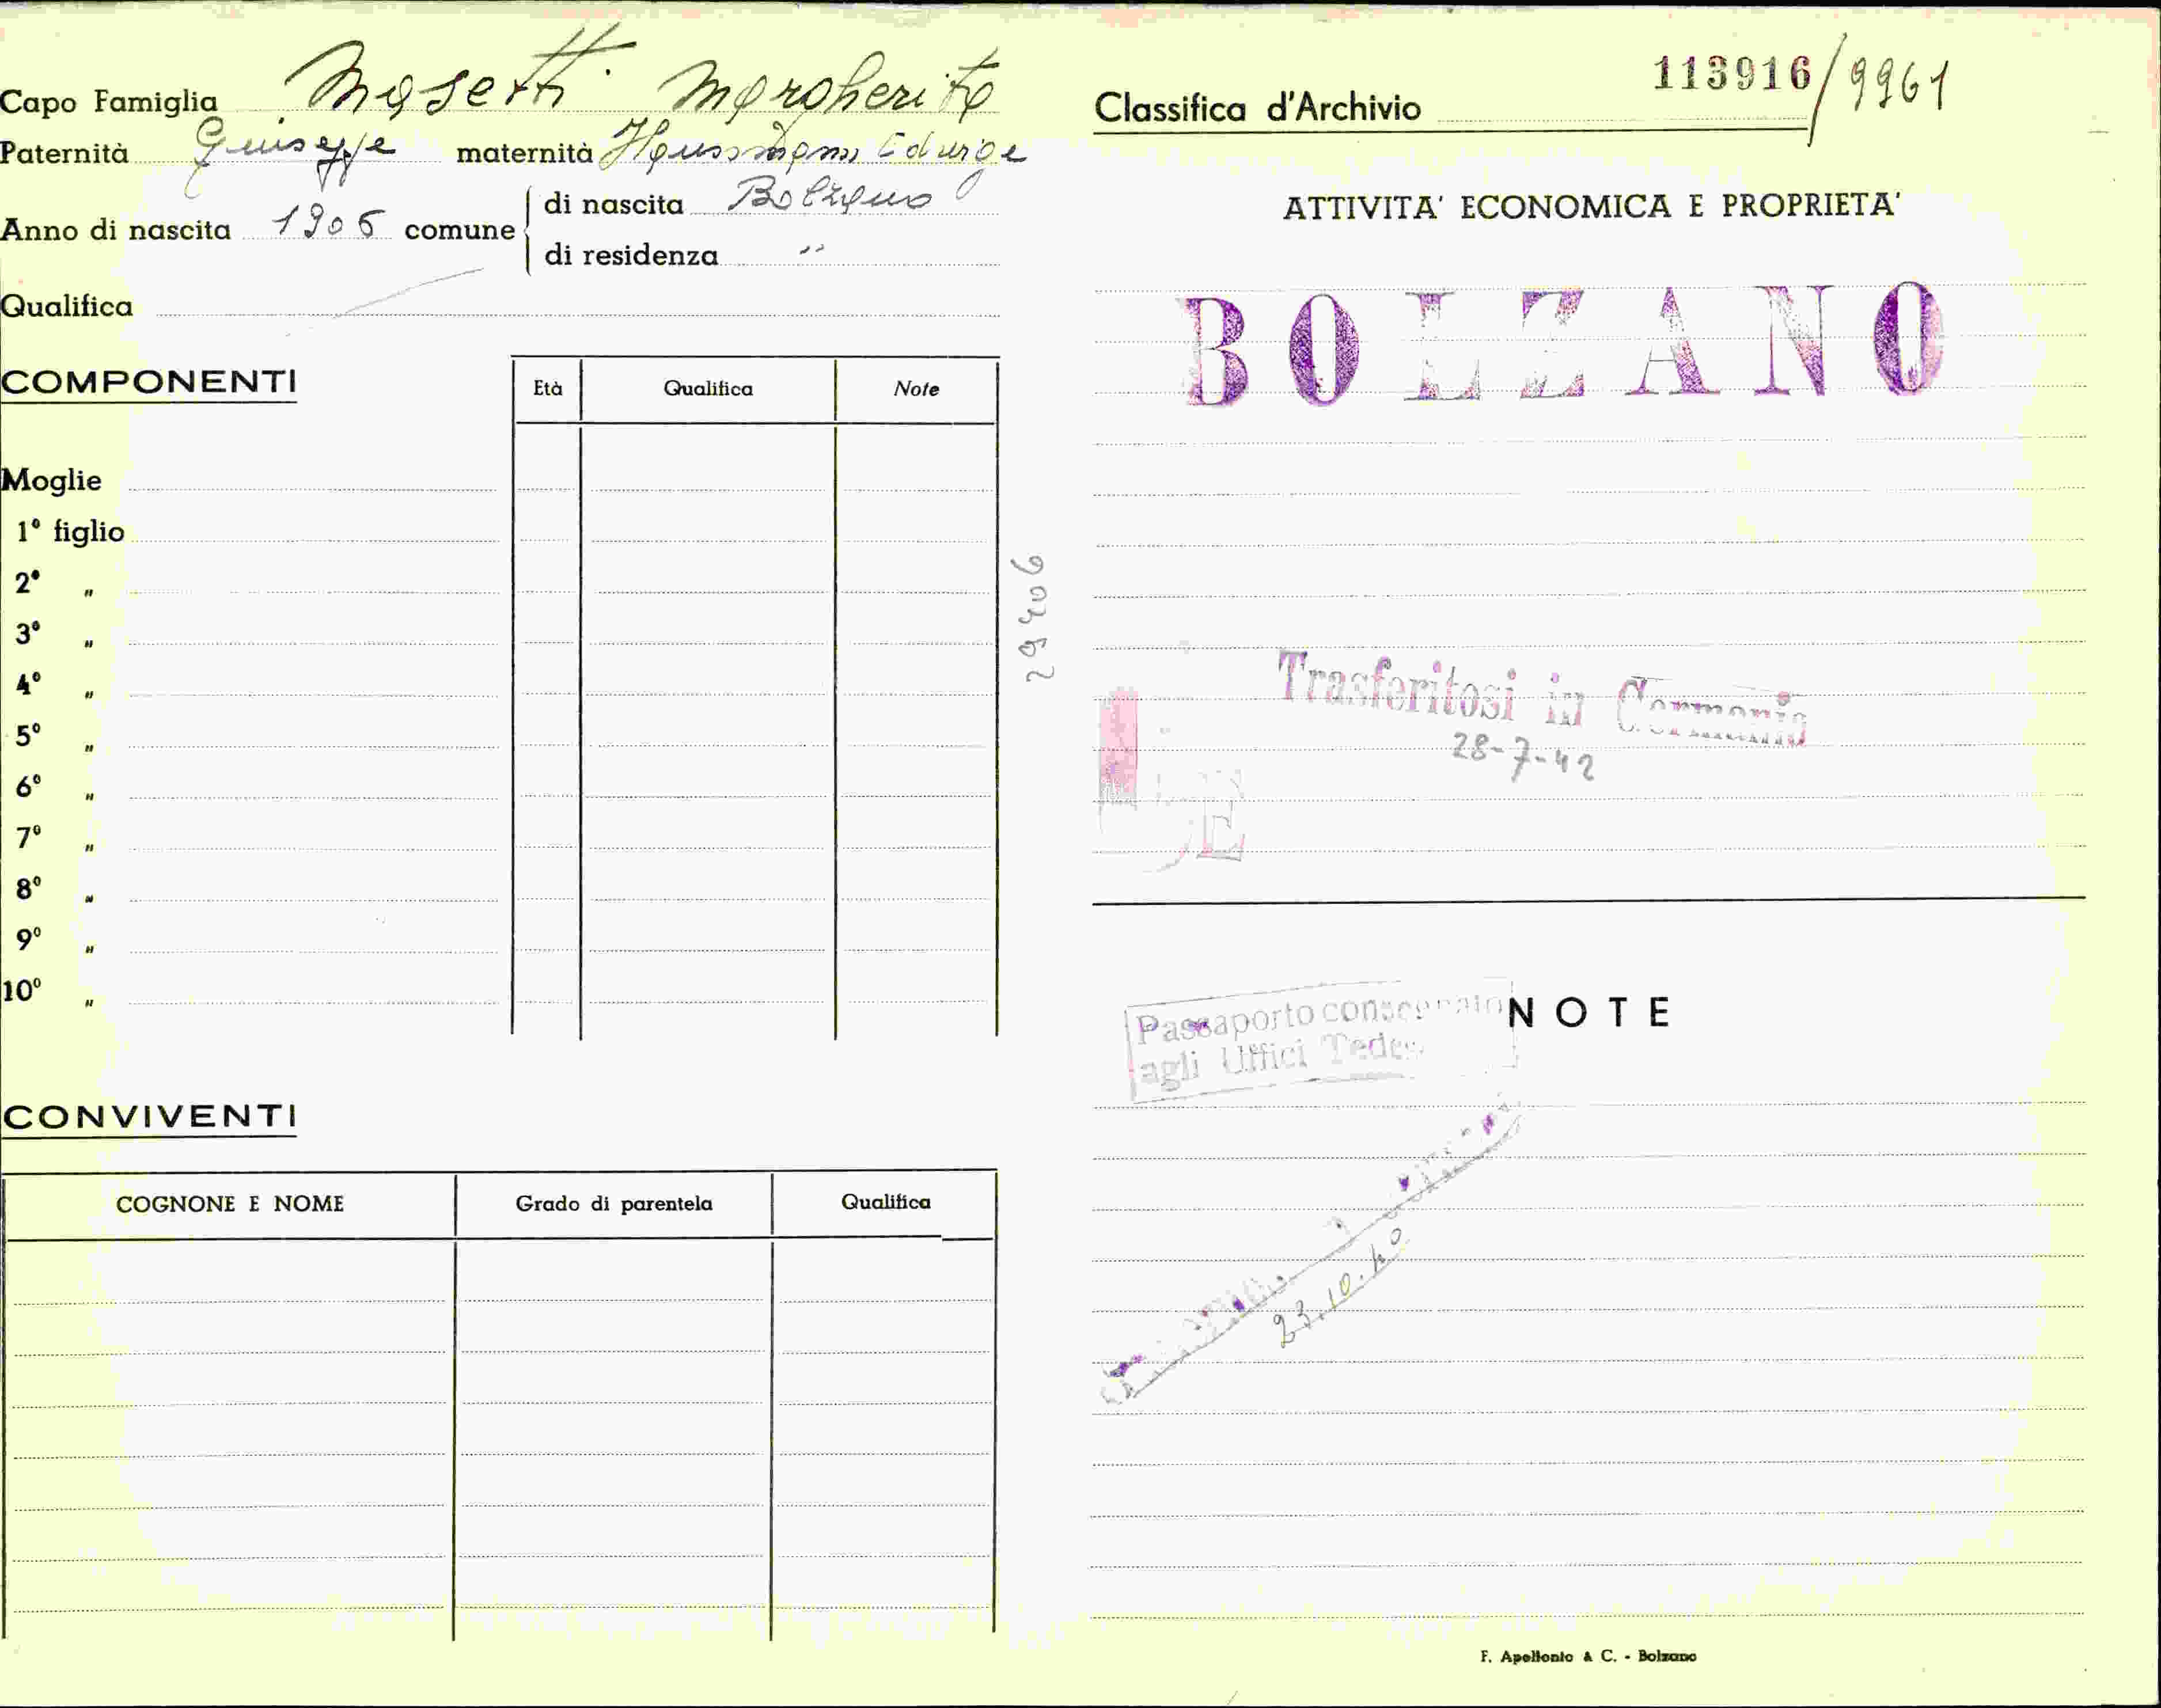 Capo Famiglia Masetti Margherita
Paternità Giuseppe maternità Haussmann Edwige
Anno di nascita 1906 comune di nascita Bolzano
di residenza "
Qualifica
COMPONENTI Età Qualifica Note
Moglie
1º figlio
2º "
3º "
4º "
5º "
6º "
7º "
8º "
9º "
10º "
29406
CONVIVENTI
COGNONE E NOME Grado di parentela Qualifica
Classifica d'Archivio 113916/9961
ATTIVITA' ECONOMICA E PROPRIETA'
BOLZANO
Trasferitosi in Germania
28-7-42
E
NOTE
Passaporto consegnato
agli Uffici
23.10.40
F. Apollonio & C. - Bolzano